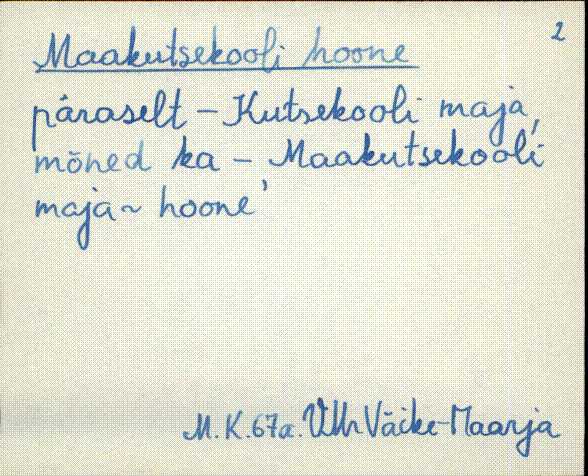 2
Maakutsekooli hoone
päraselt – Kutsekooli maja,
mõned ka – Maakutsekooli
maja ~ hoone'
M. K. 67a. VMr Väike-Maarja